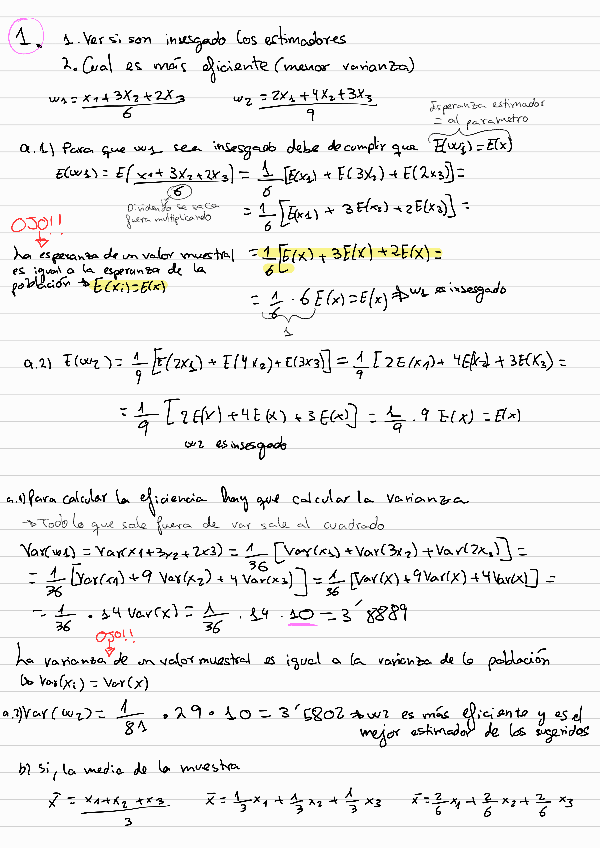 1. 1. Ver si son insesgado los estimadores
2. Cual es más eficiente (menor varianza)
w1 = (x1+3x2+2x3)/6    w2 = (2x1+4x2+3x3)/9
Esperanza estimador
= al parametro
a.1) Para que w1 sea insesgado debe de cumplir que E(w1)=E(x)
E(w1) = E[(x1+3x2+2x3)/6] = 1/6 [E(x1) + E(3x2) + E(2x3)] =
Dividendo se saca
fuera multiplicando
= 1/6 [E(x1) + 3E(x2) + 2E(x3)] =
OJO!!
La esperanza de un valor muestral
es igual a la esperanza de la
población → E(xi)=E(x)
= 1/6 [E(x) + 3E(x) + 2E(x) =
= 1/6 · 6 E(x) = E(x) → w1 es insesgado
1
a.2) E(w2) = 1/9 [E(2x1) + E(4x2) + E(3x3)] = 1/9 [2E(x1) + 4E(x2) + 3E(x3) =
= 1/9 [2E(x) + 4E(x) + 3E(x)] = 1/9 · 9 E(x) = E(x)
w2 es insesgado
a.1) Para calcular la eficiencia hay que calcular la varianza
→ Todo lo que sale fuera de var sale al cuadrado
Var(w1) = Var(x1+3x2+2x3) = 1/36 [Var(x1) + Var(3x2) + Var(2x3)] =
= 1/36 [Var(x1) + 9 Var(x2) + 4 Var(x3)] = 1/36 [Var(x) + 9Var(x) + 4Var(x)] =
= 1/36 · 14 Var(x) = 1/36 · 14 · 10 = 3'8889
OJO!!
La varianza de un valor muestral es igual a la varianza de la población
↳ Var(xi) = Var(x)
a.2) Var(w2) = 1/81 · 29 · 10 = 3'5802 → w2 es más eficiente y es el
mejor estimador de los sugeridos
b) Si, la media de la muestra
x̄ = (x1+x2+x3)/3    x̄ = 1/3 x1 + 1/3 x2 + 1/3 x3    x̄ = 2/6 x1 + 2/6 x2 + 2/6 x3